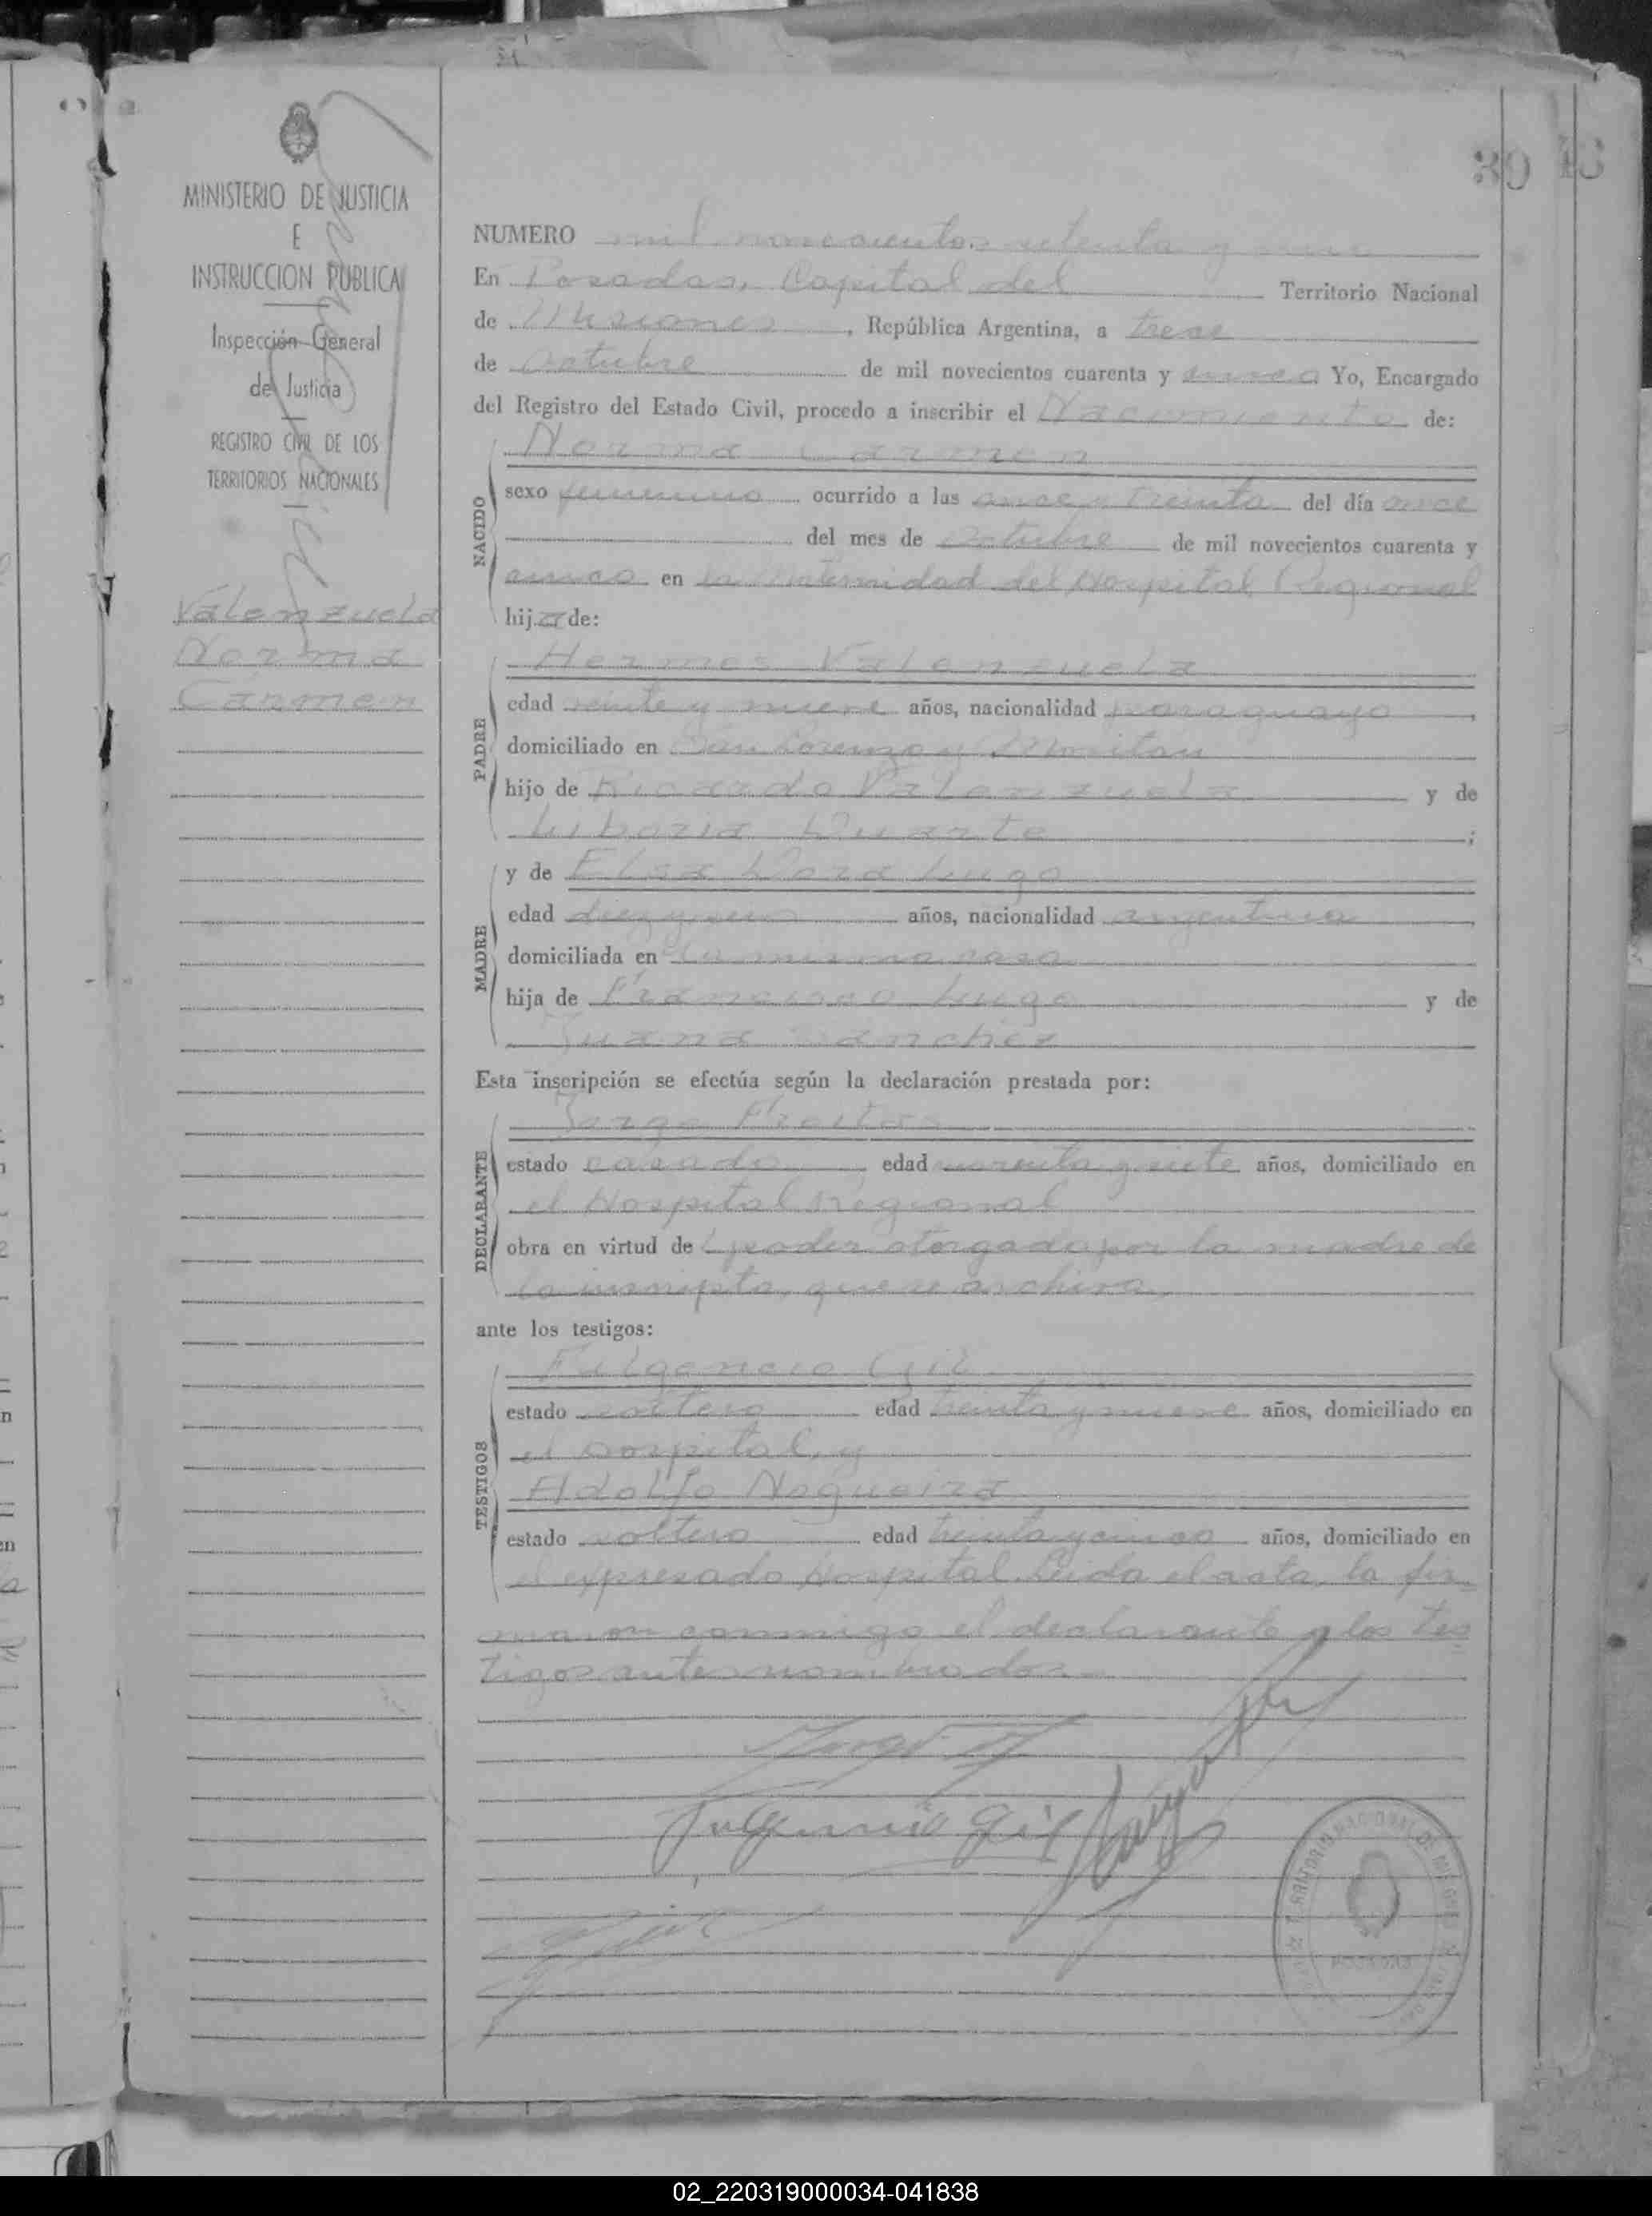 30 13
MINISTERIO DE JUSTICIA
E
INSTRUCCION PUBLICA
Inspección General
de Justicia
REGISTRO CIVIL DE LOS
TERRITORIOS NACIONALES
Valenzuela
Norma
Cármen
NUMERO mil novecientos setenta y
En Posadas, Capital del Territorio Nacional
de Misiones, República Argentina, a trece
de Octubre de mil novecientos cuarenta y cinco Yo, Encargado
del Registro del Estado Civil, procedo a inscribir el Nacimiento de:
NACIDO
Norma Carmen
sexo femenino ocurrido a las once y treinta del día once
del mes de Octubre de mil novecientos cuarenta y
cinco en la Maternidad del Hospital Regional
hija de:
PADRE
Hermes Valenzuela
edad veinte y nueve años, nacionalidad paraguayo,
domiciliado en San Lorenzo y
hijo de Ricardo Valenzuela y de
Liboria Duarte;
MADRE
y de Elsa Dora Lugo
edad diez y seis años, nacionalidad argentina,
domiciliada en la misma casa
hija de Francisco Lugo y de
Juana Sanchez
Esta inscripción se efectúa según la declaración prestada por:
DECLARANTE
Jorge Freitas
estado casado, edad cuarenta y siete años, domiciliado en
el Hospital Regional
obra en virtud de poder otorgado por la madre de
la inscripta, que se archiva,
ante los testigos:
TESTIGOS
Fulgencio Gil
estado soltero edad treinta y nueve años, domiciliado en
el Hospital, y
Adolfo Nogueira
estado soltero edad treinta y cinco años, domiciliado en
el expresado Hospital. Leida el acta, la fir-
maron conmigo el declarante y los tes
tigos antes nombrados.
Fulgencio Gil
POSADAS
02_220319000034-041838